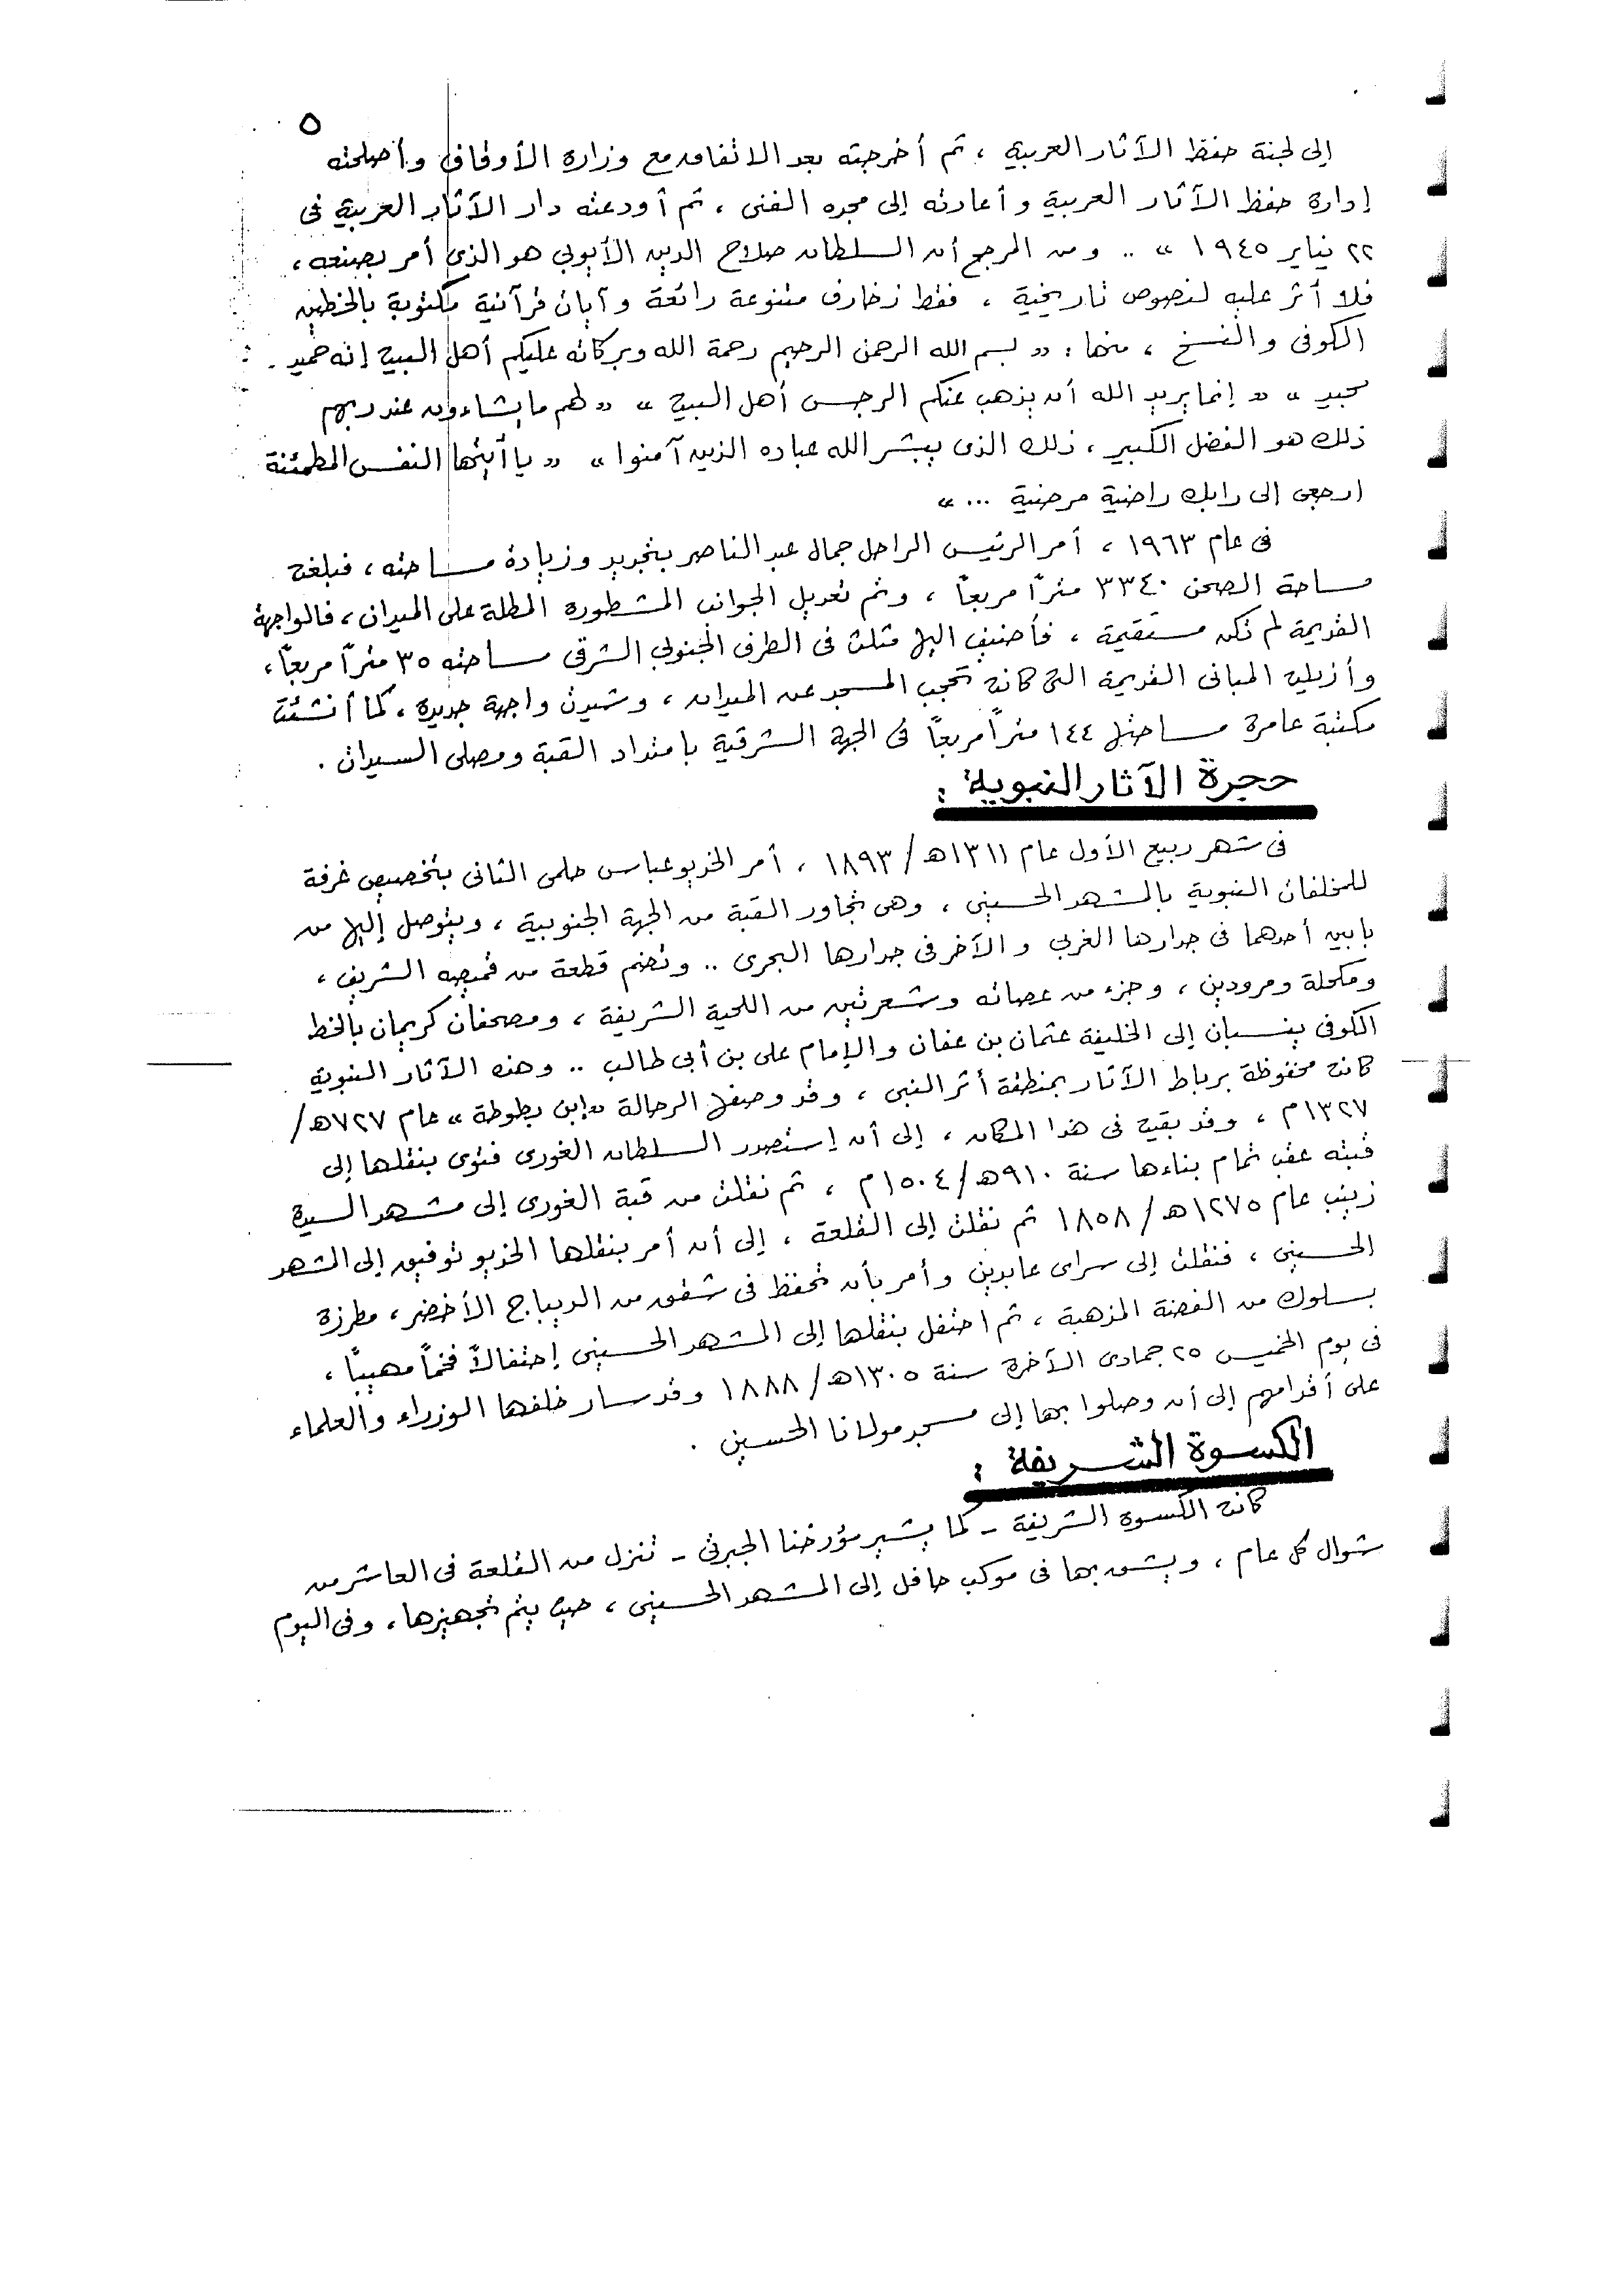 ٥
إلى لجنة حفظ الآثار العربية ، ثم أخرجته بعد الاتفاق مع وزارة الأوقاف وأصلحته
إدارة حفظ الآثار العربية وأعادته إلى مجده الفنى ، ثم أودعته دار الآثار العربية فى
٢٢ يناير ١٩٤٥ » .. ومن المرجح أن السلطان صلاح الدين الأيوبى هو الذى أمر بصنعه ،
فلا أثر عليه لنصوص تاريخية ، فقط زخارف متنوعة رائعة وآيات قرآنية مكتوبة بالخطين
الكوفى والنسخ ، منها : « بسم الله الرحمن الرحيم رحمة الله وبركاته عليكم أهل البيت إنه حميد
مجيد » « إنما يريد الله أن يذهب عنكم الرجس أهل البيت » « لهم ما يشاءون عند ربهم
ذلك هو الفضل الكبير ، ذلك الذى يبشر الله عباده الذين آمنوا » « يا أيتها النفس المطمئنة
ارجعى إلى رابك راضية مرضية ... »
فى عام ١٩٦٣ ، أمر الرئيس الراحل جمال عبد الناصر بتجديد وزيادة مساحته ، فبلغت
مساحة الصحن ٣٣٤٠ متراً مربعاً ، وتم تعديل الجوانب المشطورة المطلة على الميدان ، فالواجهة
القديمة لم تكن مستقيمة ، فأضيف اليها مثلث فى الطرف الجنوبى الشرقى مساحته ٣٥ متراً مربعاً ،
وأزيلت المبانى القديمة التى كانت تحجب المسجد عن الميدان ، وشيدت واجهة جديدة ، كما أنشئت
مكتبة عامرة مساحتها ١٤٤ متراً مربعاً فى الجهة الشرقية بامتداد القبة ومصلى السيدات .
حجرة الآثار النبوية :
فى شهر ربيع الأول عام ١٣١١هـ / ١٨٩٣ ، أمر الخديو عباس حلمى الثانى بتخصيص غرفة
للمخلفات النبوية بالمشهد الحسينى ، وهى تجاور القبة من الجهة الجنوبية ، ويتوصل إليها من
بابين أحدهما فى جدارها الغربى والآخر فى جدارها البحرى .. وتضم قطعة من قميصه الشريف ،
ومكحلة ومرودين ، وجزء من عصاته وشعرتين من اللحية الشريفة ، ومصحفان كريمان بالخط
الكوفى ينسبان إلى الخليفة عثمان بن عفان والإمام على بن أبى طالب .. وهذه الآثار النبوية
كانت محفوظة برباط الآثار بمنطقة أثر النبى ، وقد وصفها الرحالة « إبن بطوطة » عام ٧٢٧هـ /
١٣٢٧م ، وقد بقيت فى هذا المكان ، إلى أن إستصدر السلطان الغورى فتوى بنقلها إلى
قبته عقب تمام بناءها سنة ٩١٠هـ / ١٥٠٤م ، ثم نقلت من قبة الغورى إلى مشهد السيدة
زينب عام ١٢٧٥هـ / ١٨٥٨ ثم نقلت إلى القلعة ، إلى أن أمر بنقلها الخديو توفيق إلى المشهد
الحسينى ، فنقلت إلى سراى عابدين وأمر بأن تحفظ فى شقق من الديباج الأخضر ، مطرزة
بسلوك من الفضة المذهبة ، ثم احتفل بنقلها إلى المشهد الحسينى إحتفالاً فخماً مهيباً ،
فى يوم الخميس ٢٥ جمادى الآخرة سنة ١٣٠٥هـ / ١٨٨٨ وقد سار خلفها الوزراء والعلماء
على أقدامهم إلى أن وصلوا بها إلى مسجد مولانا الحسين .
الكسوة الشريفة :
كانت الكسوة الشريفة - كما يشير مؤرخنا الجبرتى - تنزل من القلعة فى العاشر من
شوال كل عام ، ويشق بها فى موكب حافل إلى المشهد الحسينى ، حيث يتم تجهيزها ، وفى اليوم